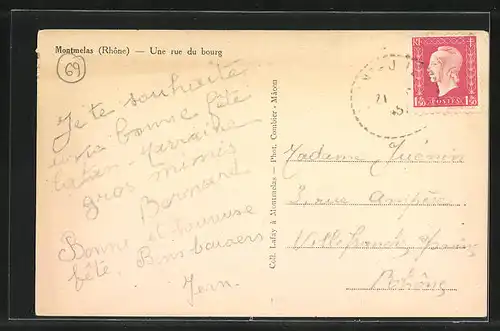 Montmelas (Rhône) — Une rue du bourg
69
Je te souhaite
une bonne fête
gros mimis
Bernard
Bonne et heureuse
fête. Bons baisers
Jean.
Coll. Lafay à Montmelas — Phot. Combier - Mâcon
21
45
RF
1F50
POSTES
1F50
Madame Guénin
3, rue Ampère
Villefranche
Rhône